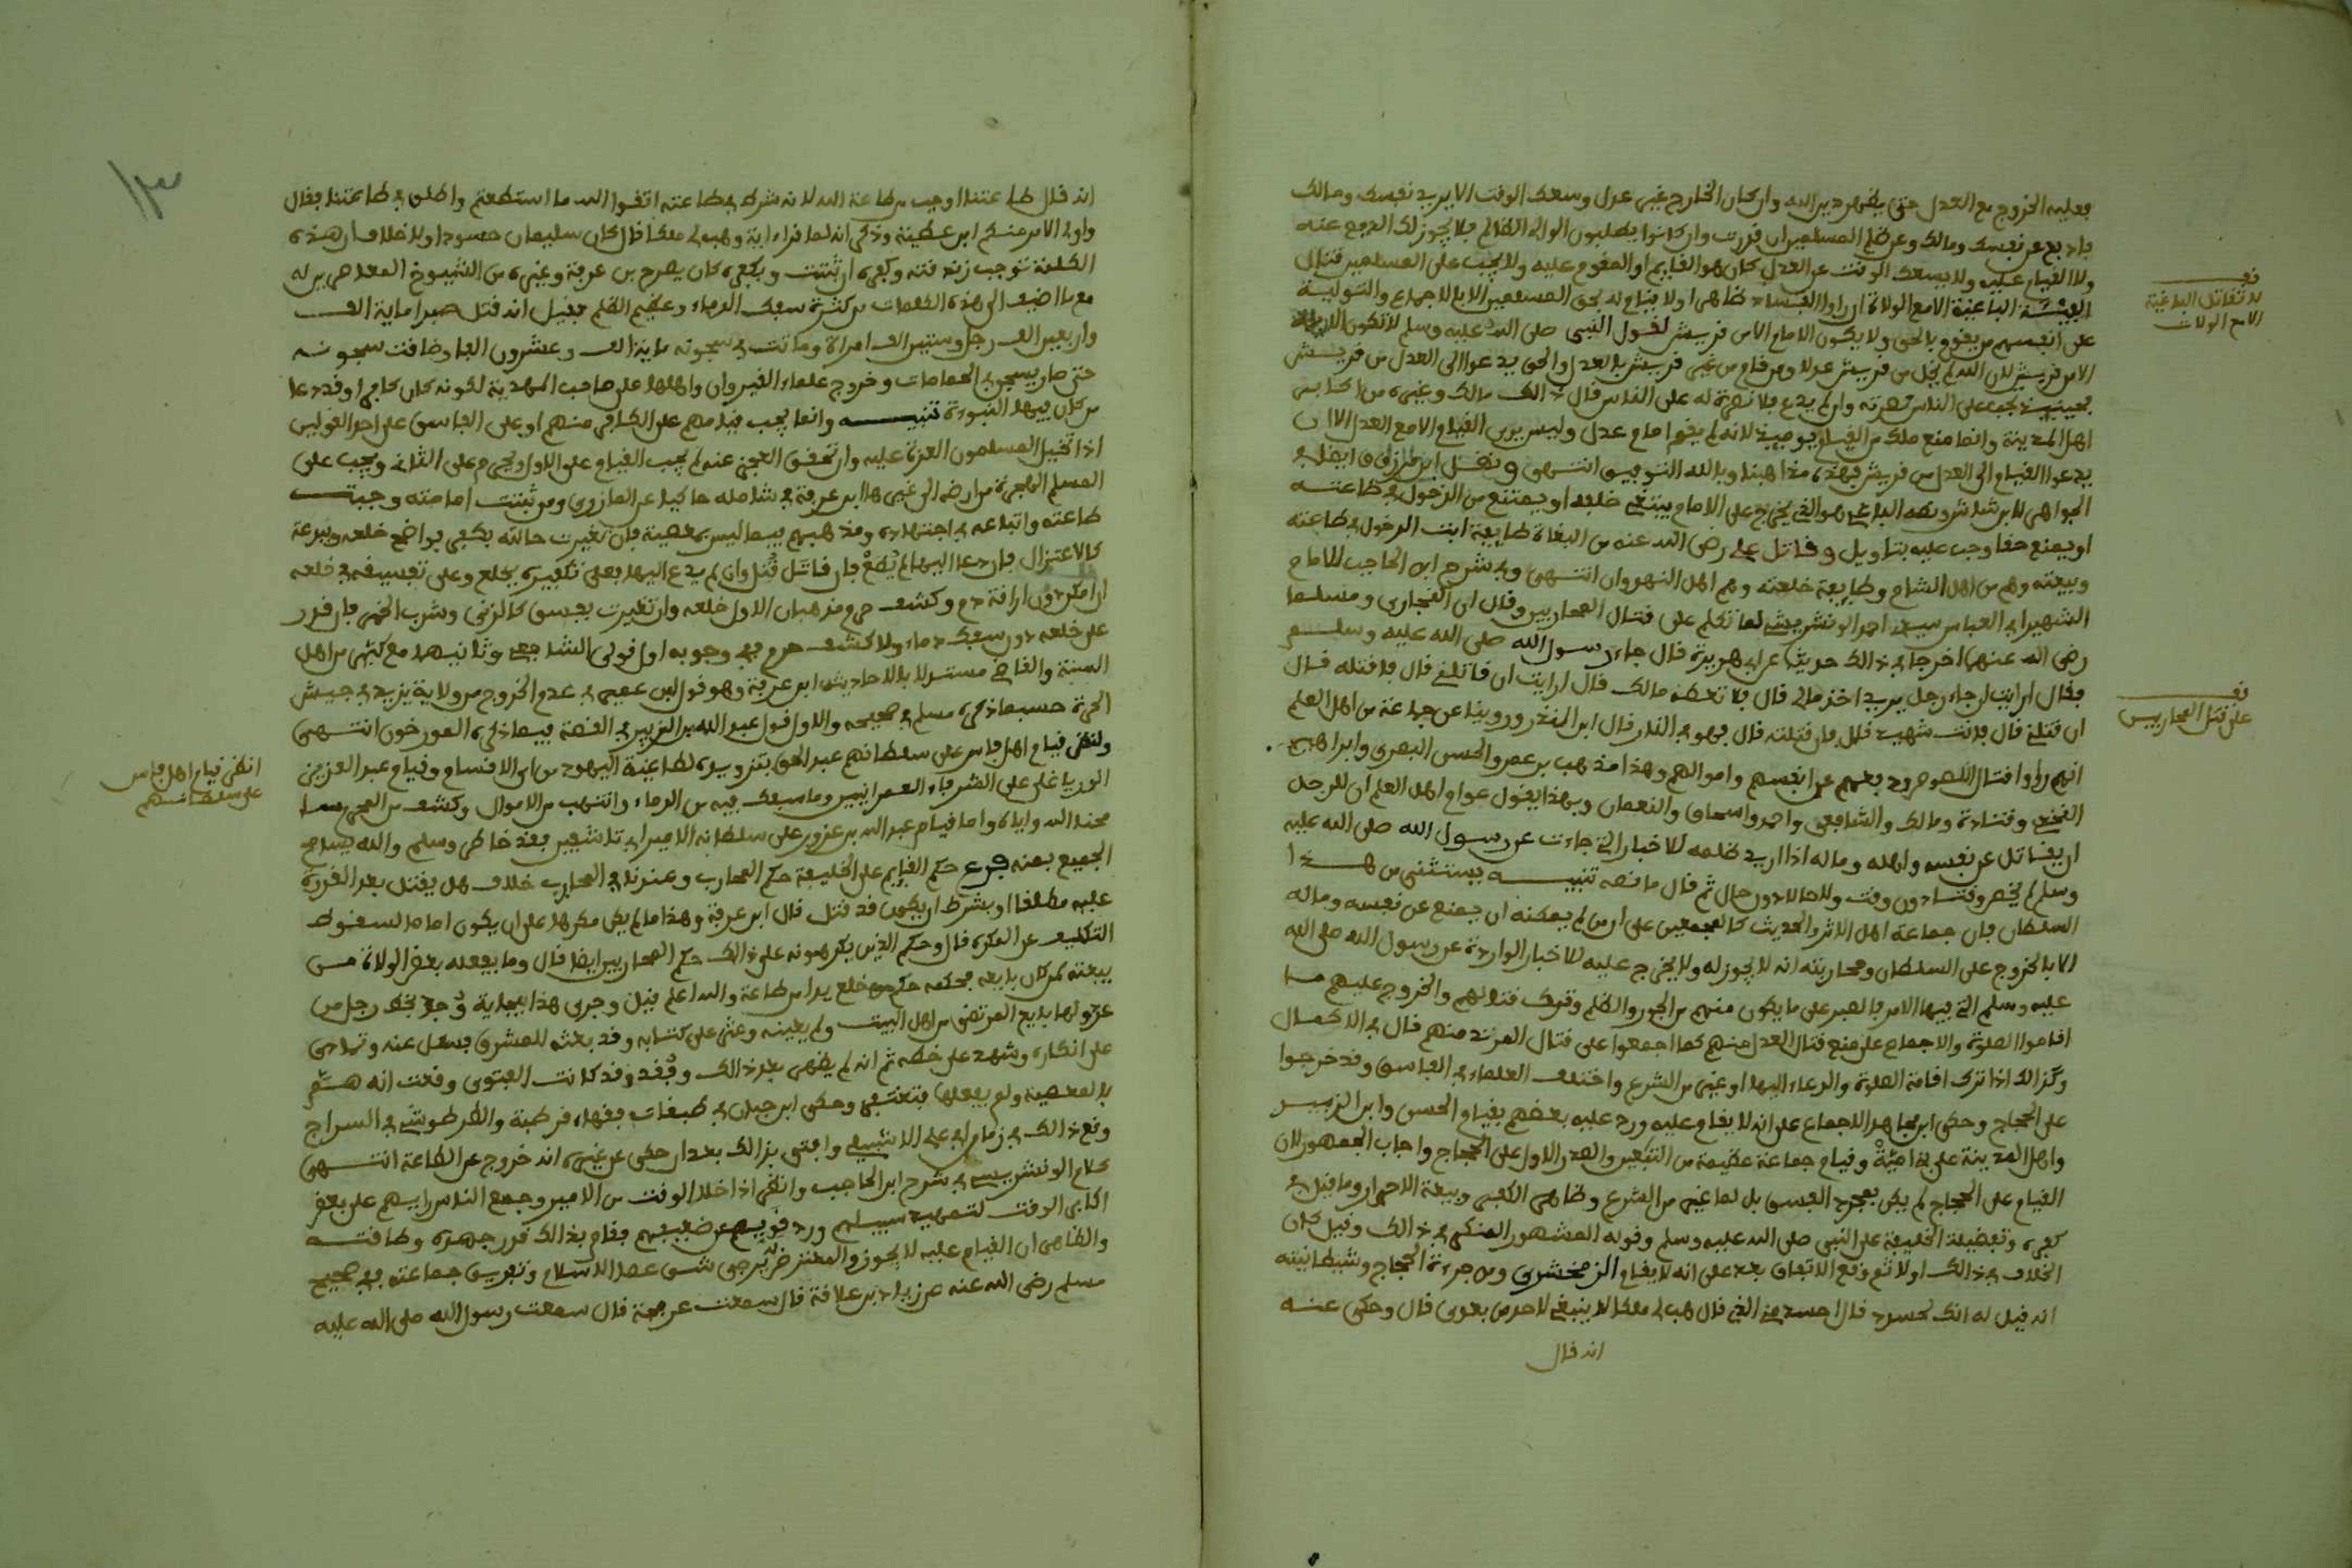 فعليه الخروج مع العدل حتى يظهر دين الله وان كان الخارج غير عدل وسعك الوقت الا يريد نفسك ومالك
فادفع عن نفسك ومالك وعن ظلم المسلمين ان قدرت وان كانوا يطلبون الوالي الظالم فلا يجوز لك الدفع عنه
ولا القيام عليه ولا يسعك الوقت عن العدل كان هو القايم او المقوم عليه ولا يجب على المسلمين قتال
الفئة الباغية الا مع الولاة ان راوا الفساد ظاهرا ولا يقام له بحق المسلمين الا بالاجماع والتولية
على انفسهم من يقوم بالحق ولا يكون الامام الا من قريش لقول النبي صلى الله عليه وسلم لا تكون الامامة
الا من قريش لان الله لم يخل من قريش عدلا ومن قام من غير قريش بالعدل والحق يدعوا الى العدل من قريش
فحينئذ يجب على الناس نصرته وان لم يدع فلا نصرة له على الناس قال ذالك مالك وغيره من اكابر
اهل المدينة وانما منع ملك من القيام يوميذ لانه لم يقم امام عدل وليس يرى القيام الا مع العدل الا ان
يدعوا القيام الى العدل من قريش فهذه مذاهبنا وبالله التوفيق انتهى ونقل ابن طرزي ايضا في
الجواهر لابن شاس ونصه الباغي هو الذي يخرج على الامام يبتغي خلعه او يمتنع من الدخول في طاعته
او يمنع حقا وجب عليه بتاويل وقاتل علي رضي الله عنه من البغاة طايفة ابت الدخول في طاعته
وبيعته وهم من اهل الشام وطايفة خلعته وهم اهل النهروان انتهى وفي شرح ابن الحاجب للامام
الشهير ابي العباس سيدي احمد الونشريشي لما تكلم على قتال المحاربين وقال ان البخاري ومسلما
رضي الله عنهما اخرجا في ذالك حديثا عن ابي هريرة قال جاء رسول الله صلى الله عليه وسلم
فقال ارايت ان جاء رجل يريد اخذ مالي قال فلا تعطه مالك قال ارايت ان قاتلني قال فاقتله قال
ان قتلني قال فانت شهيد قال فان قتلته قال فهو في النار قال ابن المنذر وروينا عن جماعة من اهل العلم
انهم راوا قتال اللصوص ودفعهم عن انفسهم واموالهم وهذا مذهب بن عمر والحسن البصري وابراهيم
النخعي وقتادة ومالك والشافعي واحمد واسحاق والنعمان وبهذا يقول عوام اهل العلم ان للرجل
ان يقاتل عن نفسه واهله وماله اذا اريد ظلمه للاخبار التي جاءت عن رسول الله صلى الله عليه
وسلم لم يخص وقتا دون وقت ولا حالا دون حال ثم قال ما نصه تنبيه يستثنى من هذا
السلطان فان جماعة اهل الاثر والحديث كالمجمعين على ان من لم يمكنه ان يمنع عن نفسه وماله
الا بالخروج على السلطان ومحاربته انه لا يجوز له ولا يخرج عليه للاخبار الواردة عن رسول الله صلى الله
عليه وسلم التي فيها الامر بالصبر على ما يكون منهم من الجور والظلم وترك قتالهم والخروج عليهم ما
اقاموا الصلوة والاجماع على منع قتال العدل منهم كما اجمعوا على قتال المرتد منهم قال في الاكمال
وكذالك اذا ترك اقامة الصلوة والدعاء اليها او غير من الشرع واختلف العلماء في الفاسق وقد خرجوا
على الحجاج وحكى ابن مجاهد الاجماع على انه لا يقام عليه ورد عليه بعضهم بقيام الحسن وابن الزبير
واهل المدينة على بني امية وقيام جماعة عظيمة من التابعين والصدر الاول على الحجاج واجاب الجمهور بان
القيام على الحجاج لم يكن بمجرد الفسق بل لما غير من الشرع وظاهر الكفر وبيعة الاحرار وما قيل في
كفره وتفضيله الخليفة على النبي صلى الله عليه وسلم وقوله المشهور المنكر في ذالك وقيل كان
الخلاف في ذالك اولا ثم وقع الاتفاق بعد على انه لا يقام الزمخشري ومن جراة الحجاج وشيطانيته
انه قيل له انك لحسود قال احسد مني الذي قال هب لي ملكا لا ينبغي لاحد من بعدي قال وحكى عنه
انه قال
نص
لا تقاتل الباغية
الا مع الولات
نص
على قتل المحاربين
١٣
انه قال طاعتنا اوجب من طاعة الله لانه شرط في طاعته اتقوا الله ما استطعتم واطلق في طاعتنا فقال
واولي الامر منكم ابن عطية وذكر انه لما قراء اية وهب لي ملكا قال كان سليمان حسودا ولا خلاف ان هذه
الكلمة توجب زندقته وكفره ان ثبتت وبكفره كان يصرح بن عرفة وغيره من الشيوخ المعاصرين له
مع ما اضيف الى هذه الكلمات من كثرة سفك الدماء وعظيم الظلم فقيل انه قتل صبرا ماية الف
واربعين الف رجل وستين الف امراة ومات في سجونه ماية الف وعشرون الفا وضاقت سجونه
حتى صار يسجن في الحمامات وخروج علماء القيروان واهلها على صاحب المهدية لكونه كان كافرا وقد دعا
من كان فيها للنبوءة تنبيه وانما يجب قيامهم على الكافر منهم او على الفاسق على احد القولين
اذا تخيل المسلمون القدرة عليه وان تحقق العجز عنه لم يجب القيام على الاول ويحرم على الثاني ويجب على
المسلم الهجرة من ارضه الى غيرها ابن عرفة في شامله حاكيا عن المازري ومن ثبتت امامته وجبت
طاعته واتباعه في اجتهاده ومذهبهم فيما ليس بمعصية فان تغيرت حالته بكفر فواضح خلعه وببدعة
كالاعتزال فان دعا اليها لم يطع فان قاتل قتل وان لم يدع اليها فعلى تكفيره يخلع وعلى تفسيقه في خلعه
ان امكن دون اراقة دم وكشف حرم مذهبان الاول خلعه وان تغيرت بفسق كالزنى وشرب الخمر فان قدر
على خلعه دون سفك دماء ولا كشف حرم ففي وجوبه اول قولي الشافعي وثانيهما مع كثير من اهل
السنة والقاضي مستدلا بالاحاديث ابن عرفة وهو قول ابن عمر في عدم الخروج من ولاية يزيد في جيش
الحرة حسبما ذكره مسلم في صحيحه والاول قول عبد الله بن الزبير في القصة فيما ذكره المورخون انتهى
وانظر قيام اهل فاس على سلطانهم عبد الحق بتزويده لطاغية اليهود من اي الاقسام وقيام عبد العزيز
الورياغلي على الشرفاء العمرانيين وما سفك فيه من الدماء وانتهب من الاموال وكشف من الحريم
محند الله واياه واما قيام عبد الله بن عزوز على سلطانه الامير ابي تاشفين فقد خاطر وسلم والله يسامح
الجميع بمنه فرع حكم القايم على الخليفة حكم المحارب وعندنا في المحارب خلاف هل يقتل بعد القدرة
عليه مطلقا او بشرط ان يكون قد قتل قال ابن عرفة وهذا ما لم يكن مكرها على ان يكون اماما لسقوط
التكليف عن المكره قال وحكم الذين يكرهونه على ذالك حكم المحاربين ايضا قال وما يفعله بعض الولاة من
بيعته لمن كان بايعه فحكمه حكم من خلع يدا من طاعة والله اعلم قيل وجرى هذا ببجاية وجد بخط رجل من
عدولها بايع المرتضى من اهل البيت ولم يعينه وعثر على كتابه وقد بعثه للمشرق فسئل عنه وتمادى
على انكاره وشهد على خطه ثم انه لم يظهر بعد ذالك وفقد وقد كانت الفتوى وقعت انه هم
بالمعصية ولم يفعلها فتغتفر وحكى ابن حيان في طبقات فقهاء قرطبة والطرطوشي في السراج
وقع ذالك في زمام ابي علي الاشبيلي وافتى بذالك بعد ان حكى عن غيره انه خروج عن الطاعة انتهى
كلام الونشريسي في شرح ابن الحاجب وانظر اذا خلا الوقت من الامير وجمع الناس رايهم على بعض
اكابر الوقت لتمهيد سبيلهم ورد قويهم عن ضعيفهم فقام بذالك قدر جهده وطاقته
والظاهر ان القيام عليه لا يجوز والمعترض يرجى شق عصا الاسلام وتفريق جماعته ففي صحيح
مسلم رضي الله عنه عن زياد بن علاقة قال سمعت عرفجة قال سمعت رسول الله صلى الله عليه
انظر قيام اهل فاس
على سلطانهم